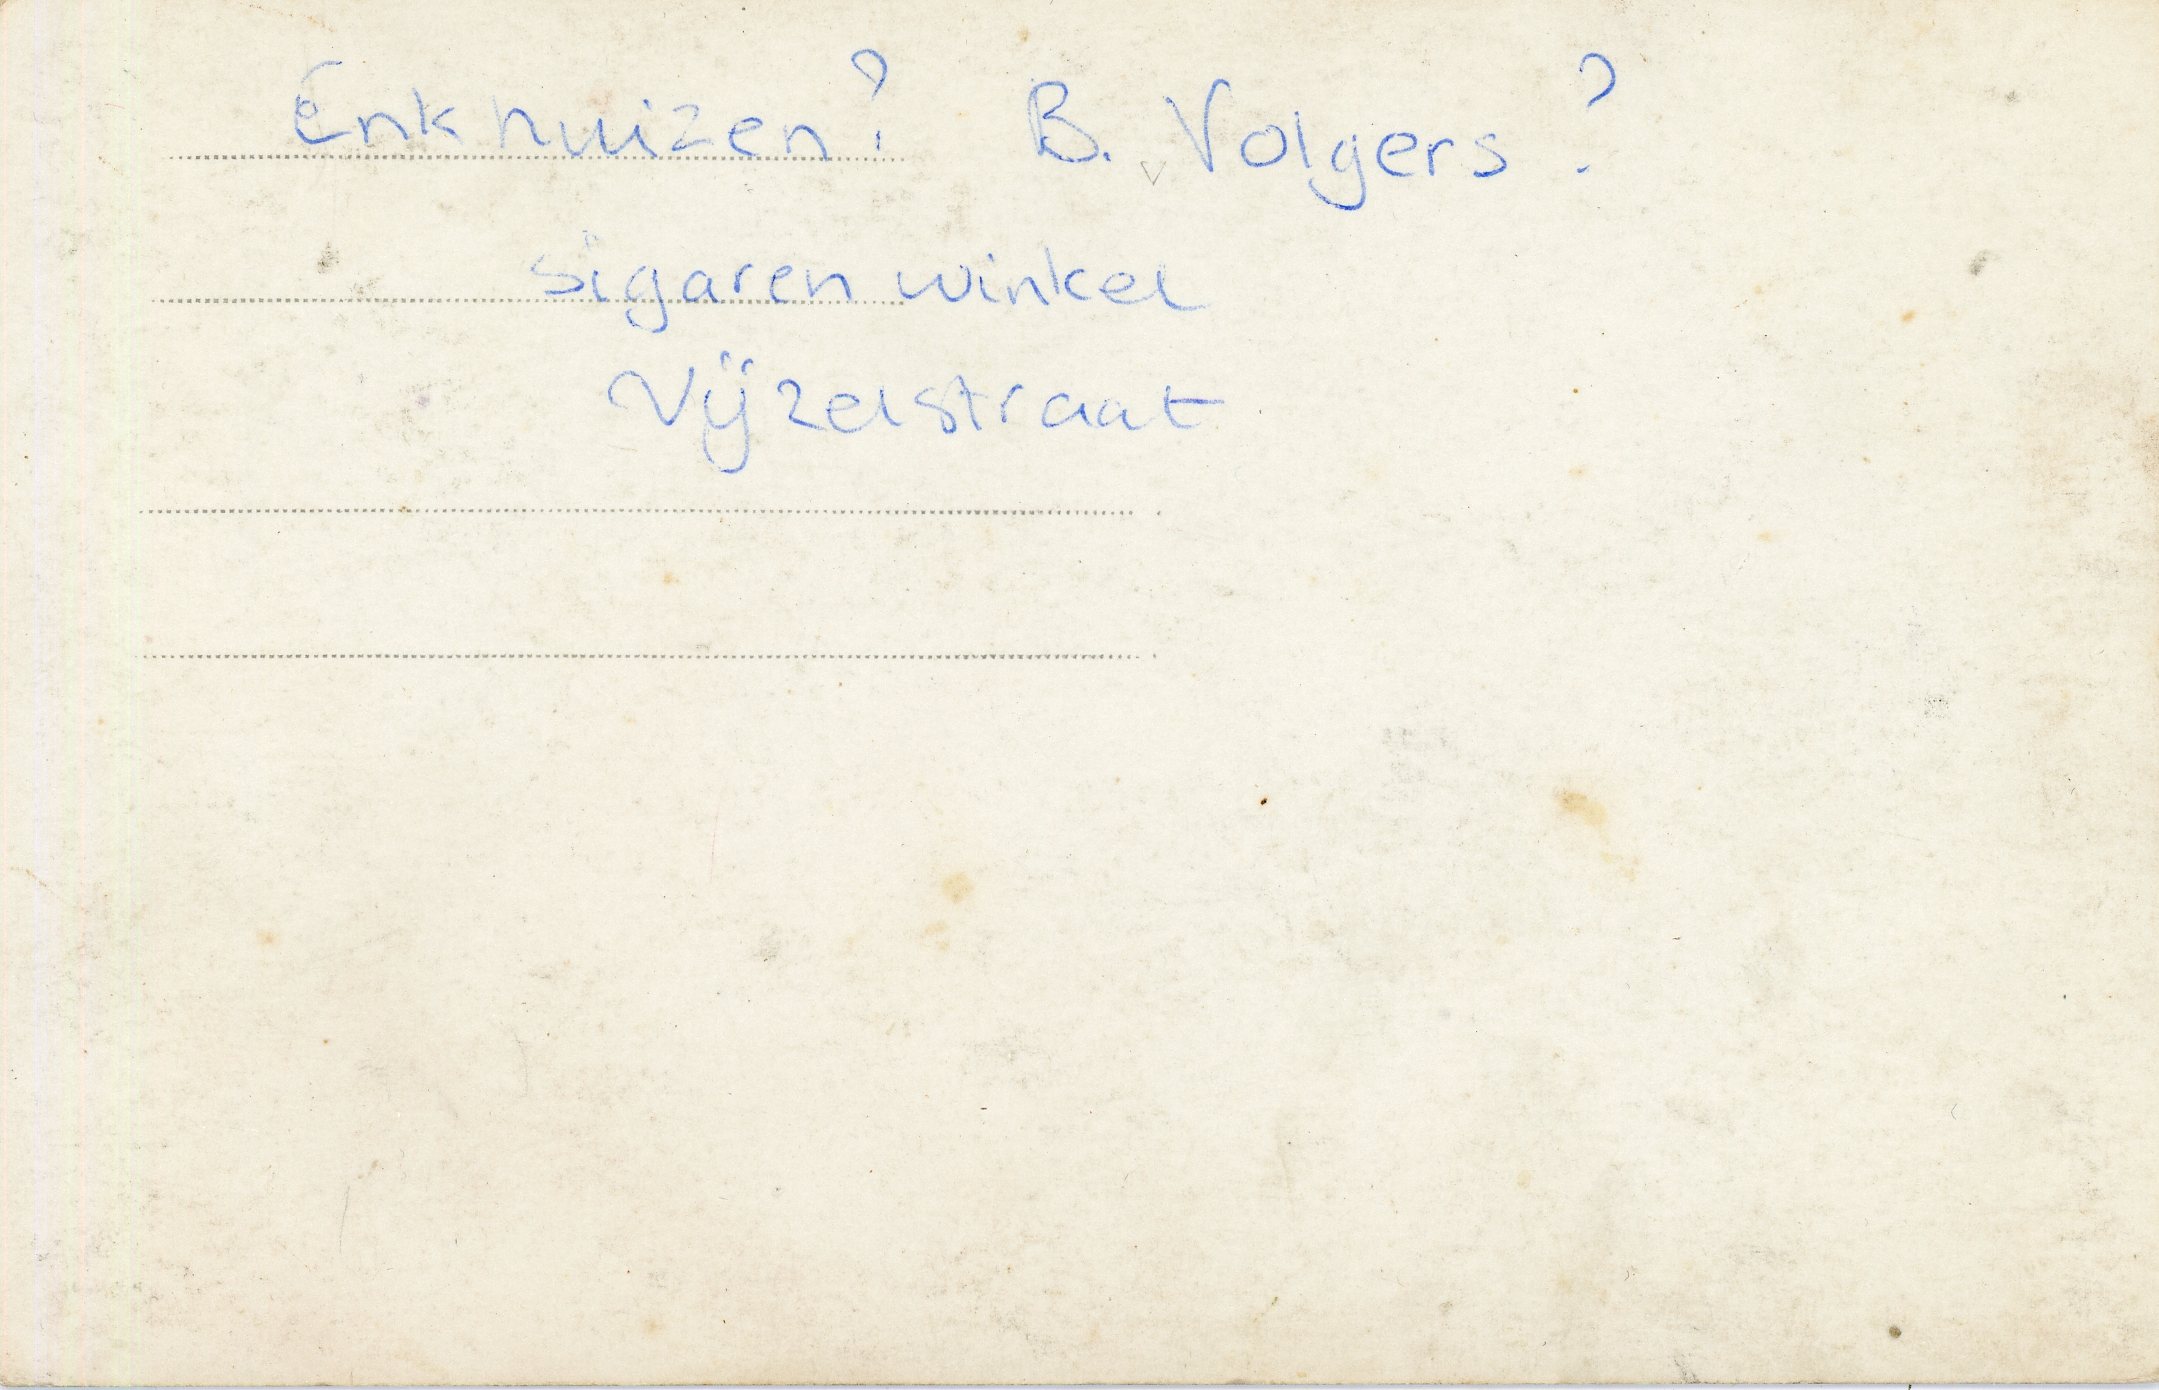 Enkhuizen? B. Volgers?
sigaren winkel
Vijzelstraat